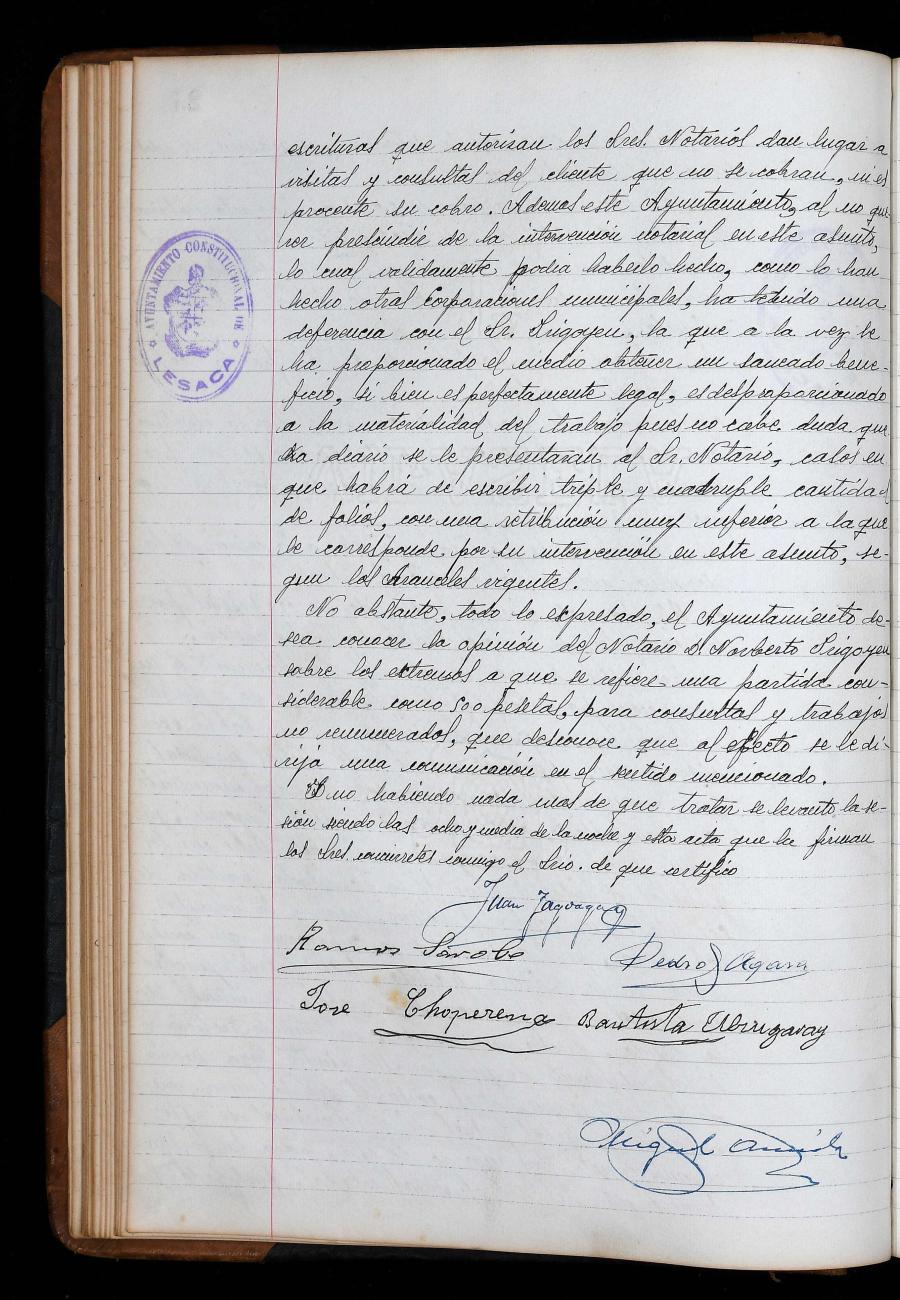 escrituras que autorizan los Sres. Notarios dan lugar a
visitas y consultas del cliente que no se cobran, ni es
procente su cobro. Ademas este Ayuntamiento, al no que-
rer prescindir de la intervención notarial en este asunto,
lo cual validamente podia haberlo hecho, como lo han
hecho otras Corporaciones municipales, ha tenido una
deferencia con el Sr. Irigoyen, la que a la vez le
ha proporcionado el medio obtener un saneado bene-
ficio, si bien es perfectamente legal, es desproporcionado
a la materialidad del trabajo pues no cabe duda que
a diario se le presentaran al Sr. Notario, casos en
que habrá de escribir triple y cuadruple cantidad
de folios, con una retribución muy inferior a la que
le corresponde por su intervención en este asunto, se-
gun los Aranceles vigentes.
No obstante, todo lo expresado, el Ayuntamiento de-
sea conocer la opinión del Notario D. Norberto Irigoyen
sobre los extremos a que se refiere una partida con-
siderable como 500 pesetas, para consultas y trabajos
no remunerados, que desconoce que al efecto se le di-
rija una comunicación en el sentido mencionado.
Y no habiendo nada mas de que tratar se levanto la se-
sión siendo las ocho y media de la noche y esta acta que la firman
los Sres. concurretes conmigo el Srio. de que certifico
AYUNTAMIENTO CONSTITUCIONAL DE
LESACA
Juan
Ramos Sarobe
Pedro Agara
Jose Choperena Bautista
Miguel